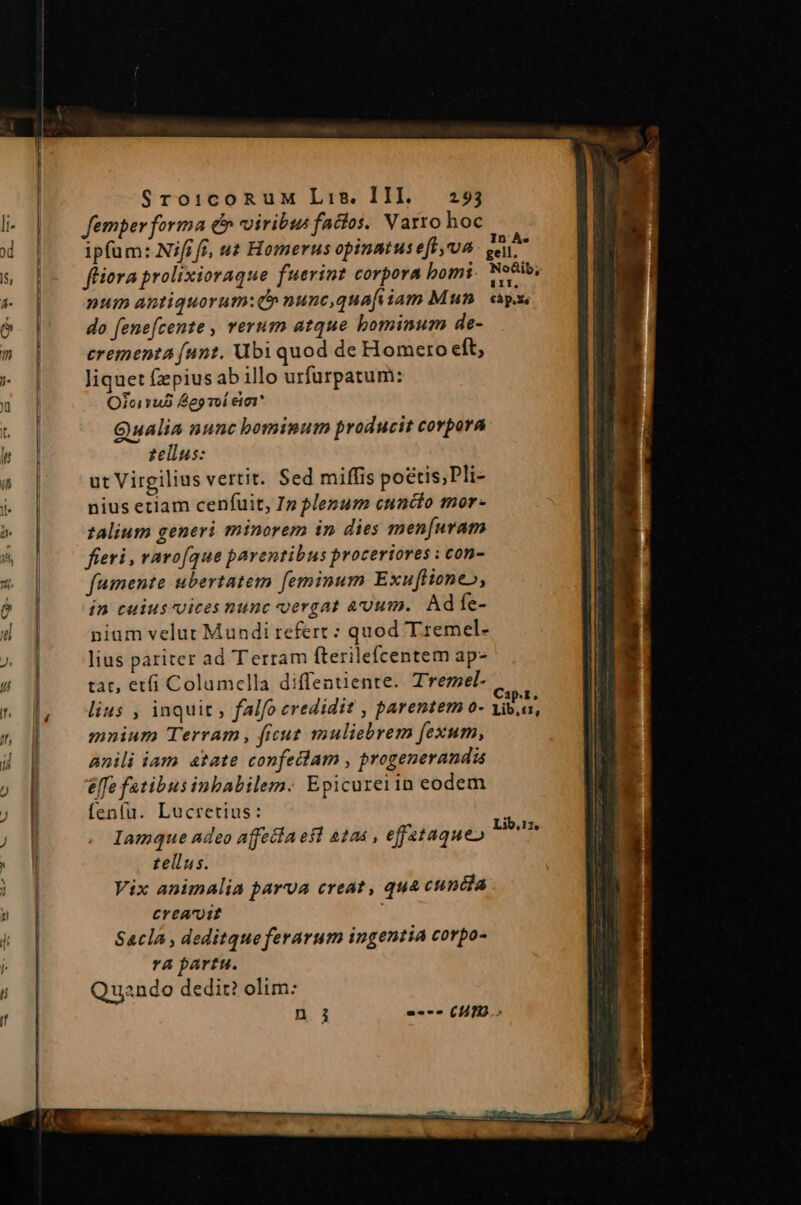 STOICORUM LIB. III. 293
ſemper forma & viribus factos. Varro hoc
ipſum: Niſi ſi, ut Homerus opinatus eſt, va-
In A-
gell.
ſtiora prolixioraque fuerint corpora homi-
Noctib.
III.
num antiquorum: & nunc, quaſi iam Mun-
cap.x.
do ſeneſcente, rerum atque hominum de-
crementa ſunt. Ubi quod de Homero eſt,
liquet ſæpius ab illo urſurpatum:
Οἷοι νυῦ βροτοί εἰσι·
Qualia nunc hominum producit corpora
tellus:
ut Virgilius vertit. Sed miſſis poëtis, Pli-
nius etiam cenſuit, In plenum cuncto mor-
talium generi minorem in dies menſuram
fieri, raroſque parentibus proceriores: con-
ſumente ubertatem ſeminum Exuſtione,
in cuius vices nunc vergat ævum. Ad ſe-
nium velut Mundi refert: quod Tremel-
lius pariter ad Terram ſterileſcentem ap-
tat, etſi Columella diſſentiente. Tremel-
Cap.1.
lius, inquit, falſo credidit, parentem o-
Lib.11,
mnium Terram, ſicut muliebrem ſexum,
anili iam ætate confectam, progenerandis
eſſe fatibus inhabilem. Epicurei in eodem
ſenſu. Lucretius:
Lib.12.
Iamque adeo affecta eſt ætas, effætaque
tellus.
Vix animalia parva creat, quæ cuncta
creavit
Sæcla, deditque ferarum ingentia corpo-
ra partu.
Quando dedit? olim:
n 3 ---- cum